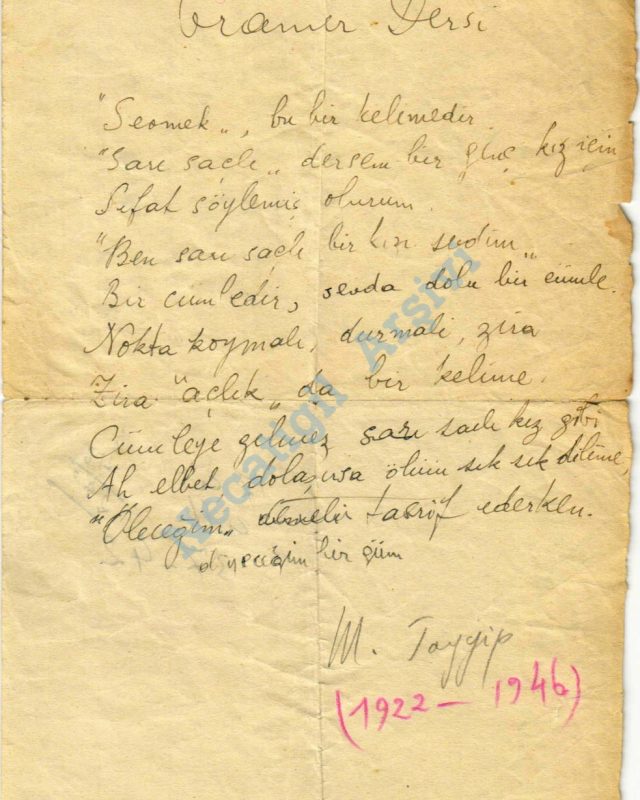 Gramer Dersi
"Sevmek", bu bir kelimedir
"Sarı saçlı" dersem bir genç kız için
Sıfat söylemiş olurum.
"Ben sarı saçlı bir kızı sevdim"
Bir cümledir, sevda dolu bir cümle.
Nokta koymalı, durmalı, zira
Zira "açlık" da bir kelime.
Cümleye gelmez sarı saçlı kız gibi
Ah elbet dolaşırsa ölüm sık sık dilime,
"Öleceğim" tasrif ederken.
diyeceğim bir gün
M. Tayyip
(1922 - 1946)
Necatigil Arşivi